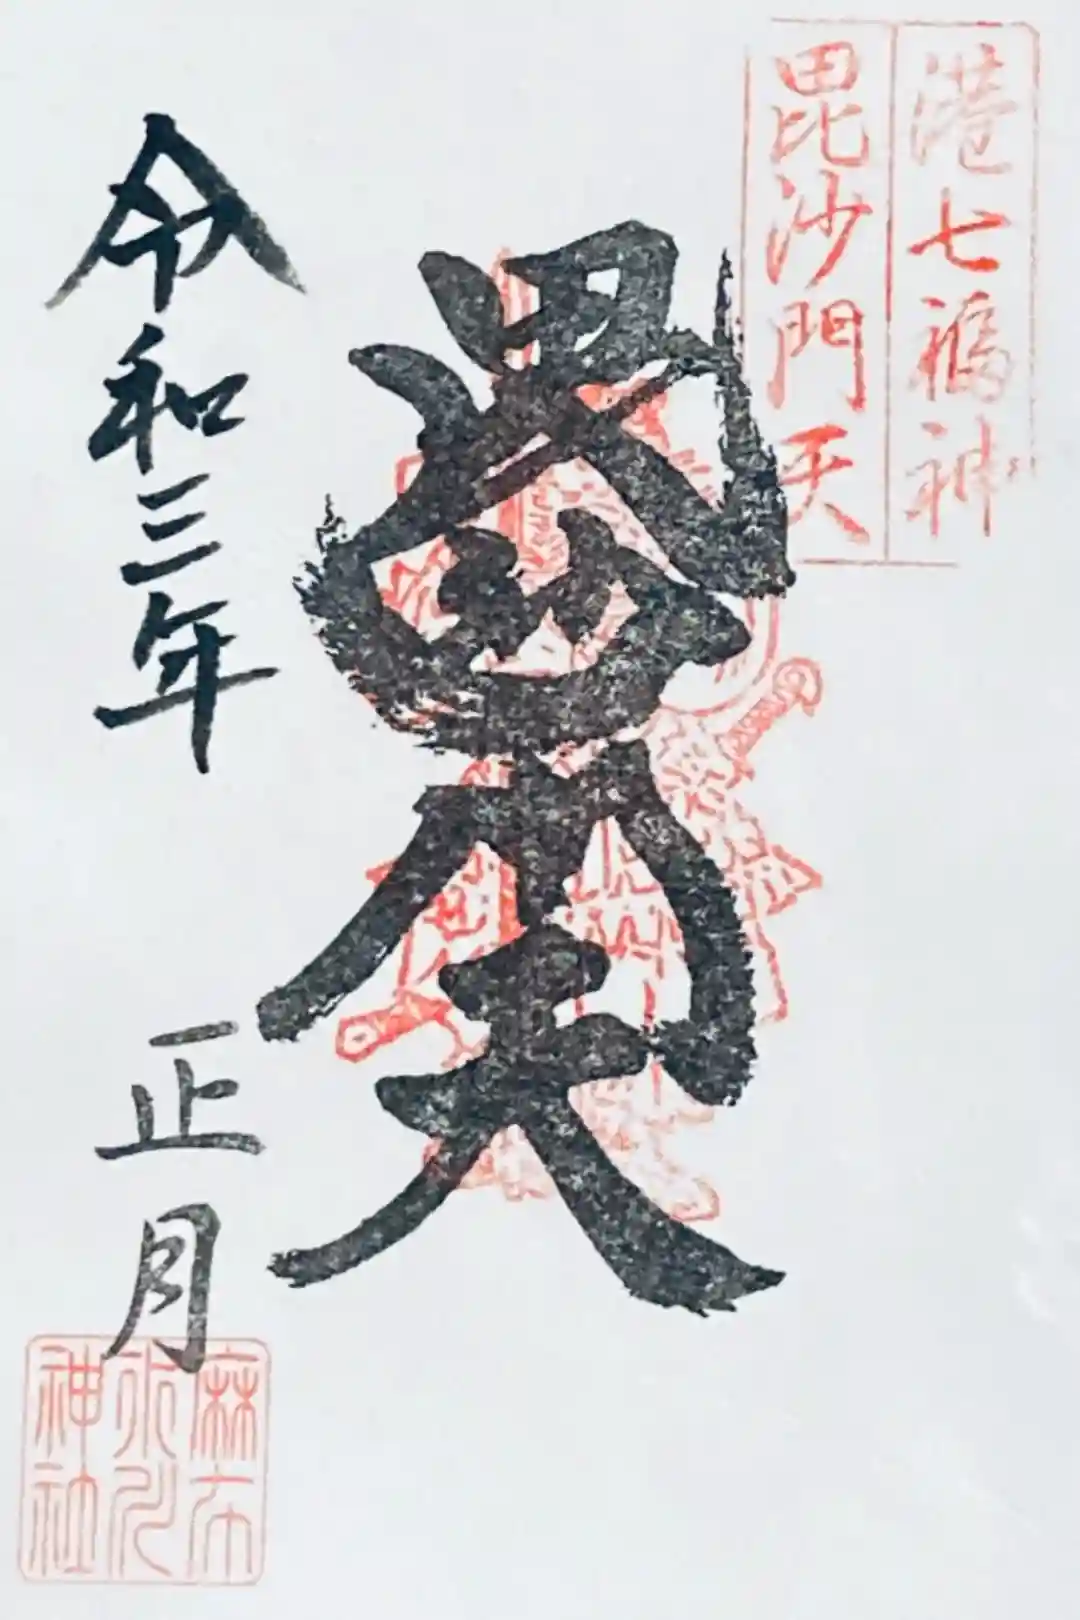 港七福神
毘沙門天
毘沙門天
令和三年
正月
麻布
氷川
神社